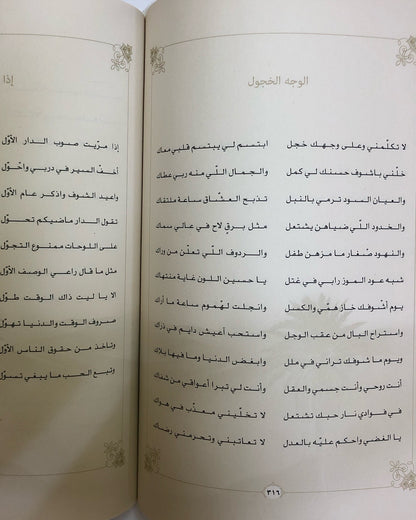 الوجه الخجول
لا تكلّمني وعلى وجهك خجل ابتسم لي يبتسم قلبي معاك
خلّني باشوف حسنك لي كمل والجمال اللّي منه ربي عطاك
والعيان السود ترمي بالنبل تذبح العشّاق ساعة ملتقاك
والخدود اللّي ضياهن يشتعل مثل برقٍ لاح في عالي سماك
والنهود صْغار ما مزهن طفل والردوف اللّي تعلّن من وراك
شبه عود الموز رابي في غتل يا حسين اللون غاية منتهاك
يوم أشوفك خاز همّي والكسل وانجلت لهموم ساعة ما أراك
واستراح البال من عقب الوجل واستحب أعيش دايم في ذراك
ويوم ما شوفك تراني في ملل وابغض الدنيا وما فيها بلاك
أنت روحي وأنت جسمي والعقل وأنت لي تبرا أعواقي من شفاك
في فوادي نار حبك تشتعل لا تخلّيني معذّب في هواك
يا الغضي واحكم عليّه بالعدل لا تعاتبني وتحرمني رضاك
٣١٦
إذا
إذا مرّيت صوب الدار الأوّل
أخفّ السير في دربي واحْوّل
واعيد الشوف واذكر عام الأوّل
تقول الدار ماضيكم تحوّل
على اللوحات ممنوع التجوّل
مثل ما قال راعي الوصف الأوّل
الا يا ليت ذاك الوقت طوّل
صروف الوقت والدنيا تهوّل
وتاخذ من حقوق الناس الأوّل
وتبع الحب ما يبغي تسوّل